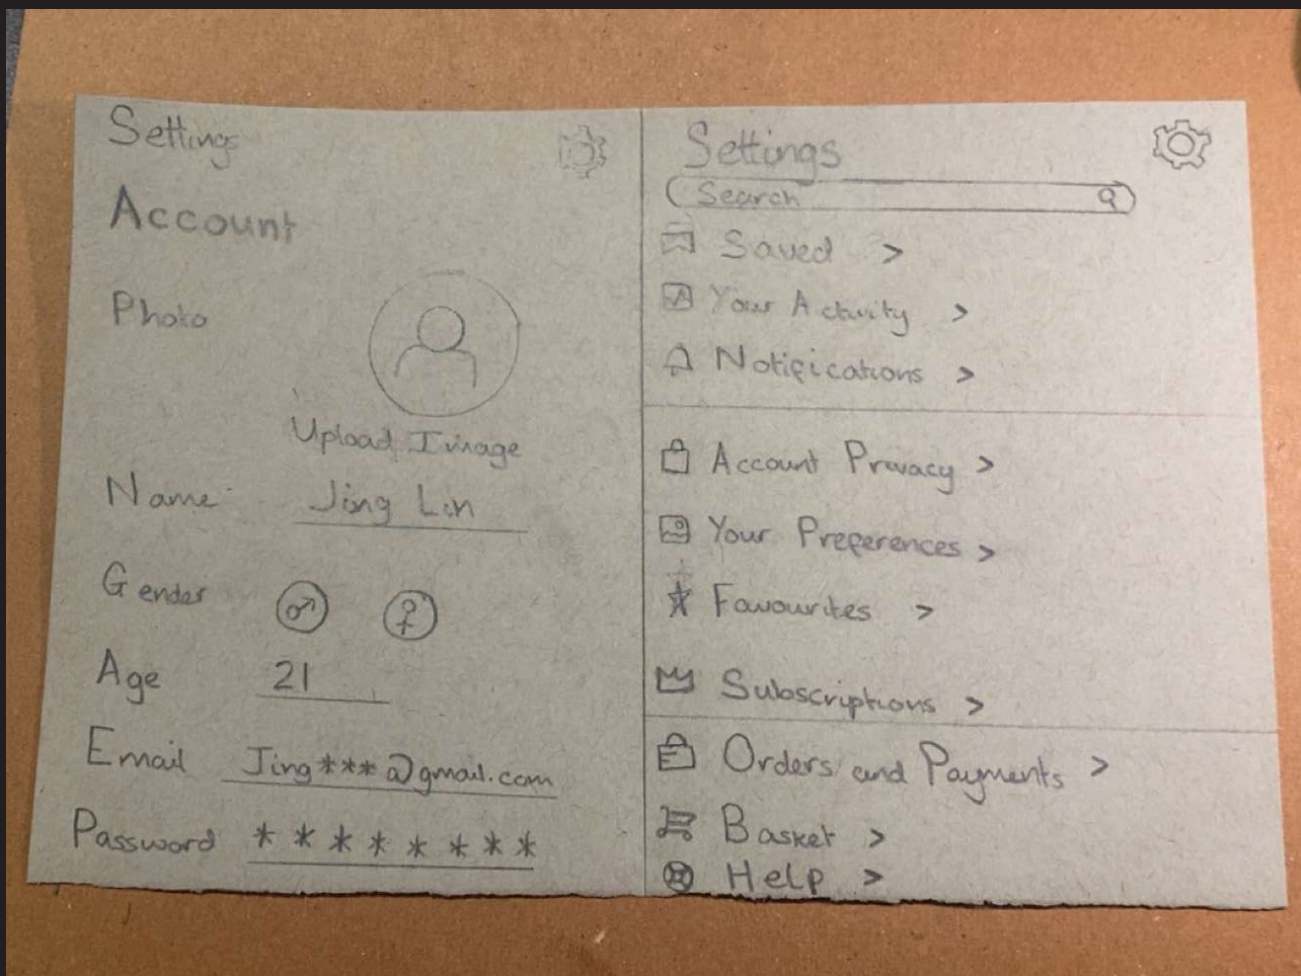 Settings
Account
Photo
Upload Image
Name
Jing Lin
Gender
Age
21
Email
Jing***@gmail.com
Password
* * * * * * * *
Settings
Search
Saved >
Your Activity >
Notifications >
Account Privacy >
Your Preferences >
Favourites >
Subscriptions >
Orders and Payments >
Basket >
Help >